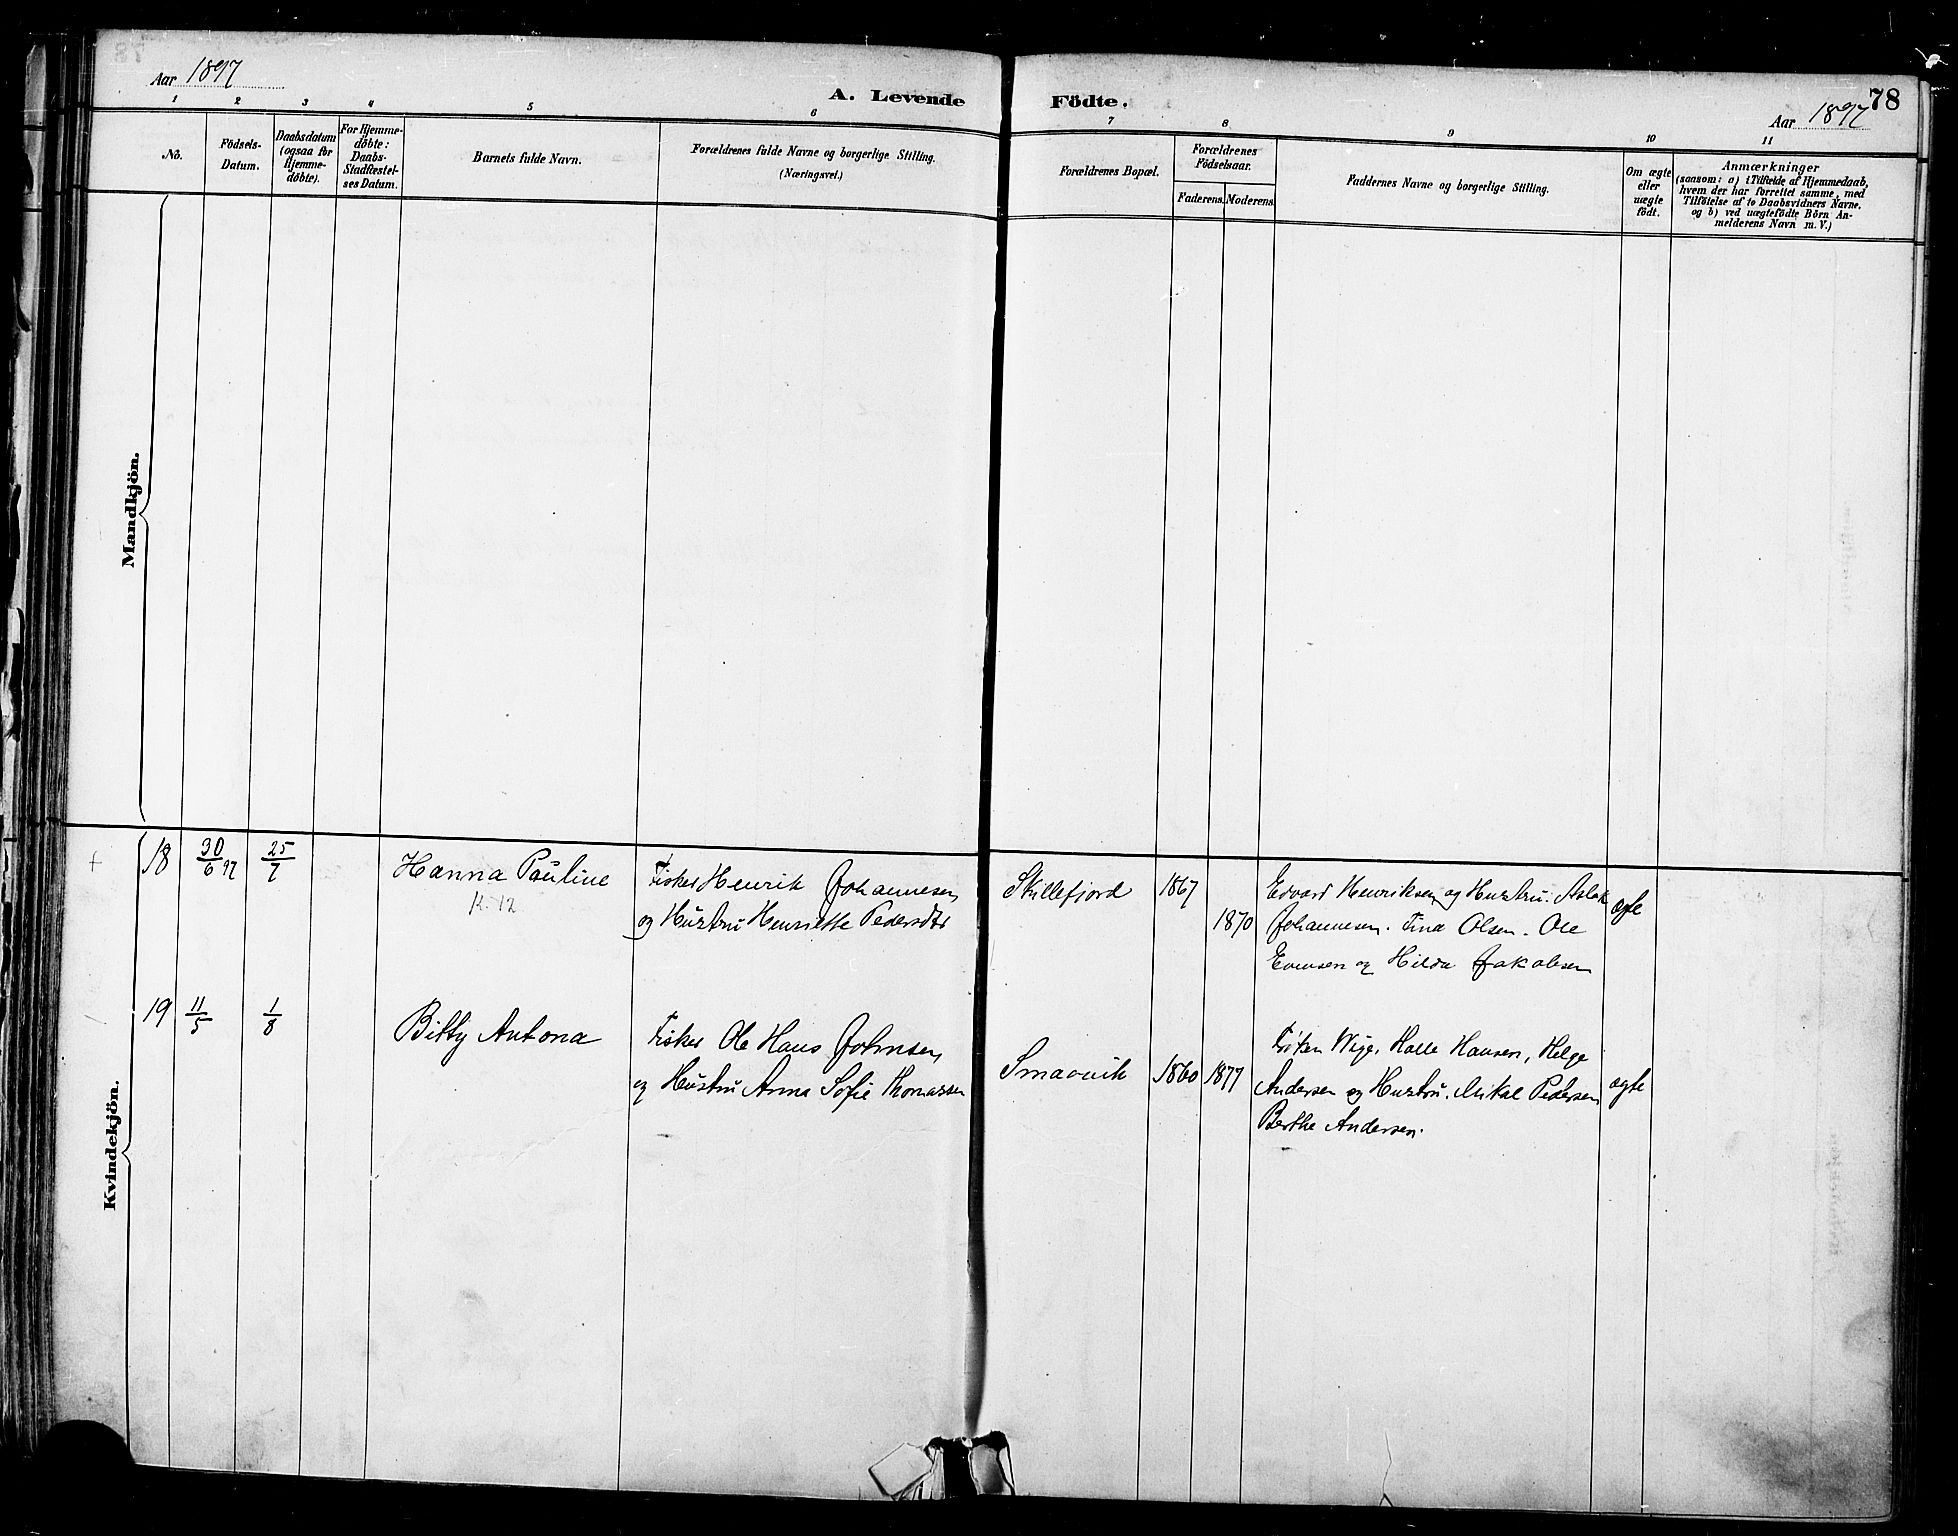 Aar 1897
A. Levende Födte.
78
Aar 1897
1 2 3 4 5 6 7 8 9 10 11
No.
Födsels-
Datum.
Daabsdatum
(ogsaa for
Hjemme-
döbte).
For Hjemme-
döbte:
Daabs-
Stadfæstel-
ses Datum.
Barnets fulde Navn.
Forældrenes fulde Navne og borgerlige Stilling.
(Næringsvei.)
Forældrenes Bopæl.
Forældrenes
Födselsaar.
Faderens. Moderens.
Faddernes Navne og borgerlige Stilling.
Om ægte
eller
uægte
födt.
Anmærkninger
(saasom: a) i Tilfælde af Hjemmedaab,
hvem der har forrettet samme, med
Tilföielse af to Daabsvidners Navne.
og b) ved uægtefödte Börn An-
melderens Navn m. V.)
Mandkjön.
Kvindekjön.
18 30/6 97 25/7
Hanna Pauline
K. 12
Fisker Henrik Johannesen
og Hustru Henriette Pedersdtr
Skillefjord 1867
1870
Edvard Henriksen og Hustru. Aslak
Johannesen. Tina Olsen. Ole
Evensen og Hilda Jakobsen
ægte
19 11/5 1/8
Bitty Antona
Fisker Ole Hans Johnsen
og Hustru Anna Sofie Thomassen
Smaavik 1860 1877
Frøken Wige, Halle Hansen, Helge
Andersen og Hustru. Mikal Pedersen
Berthe Andersen.
ægte